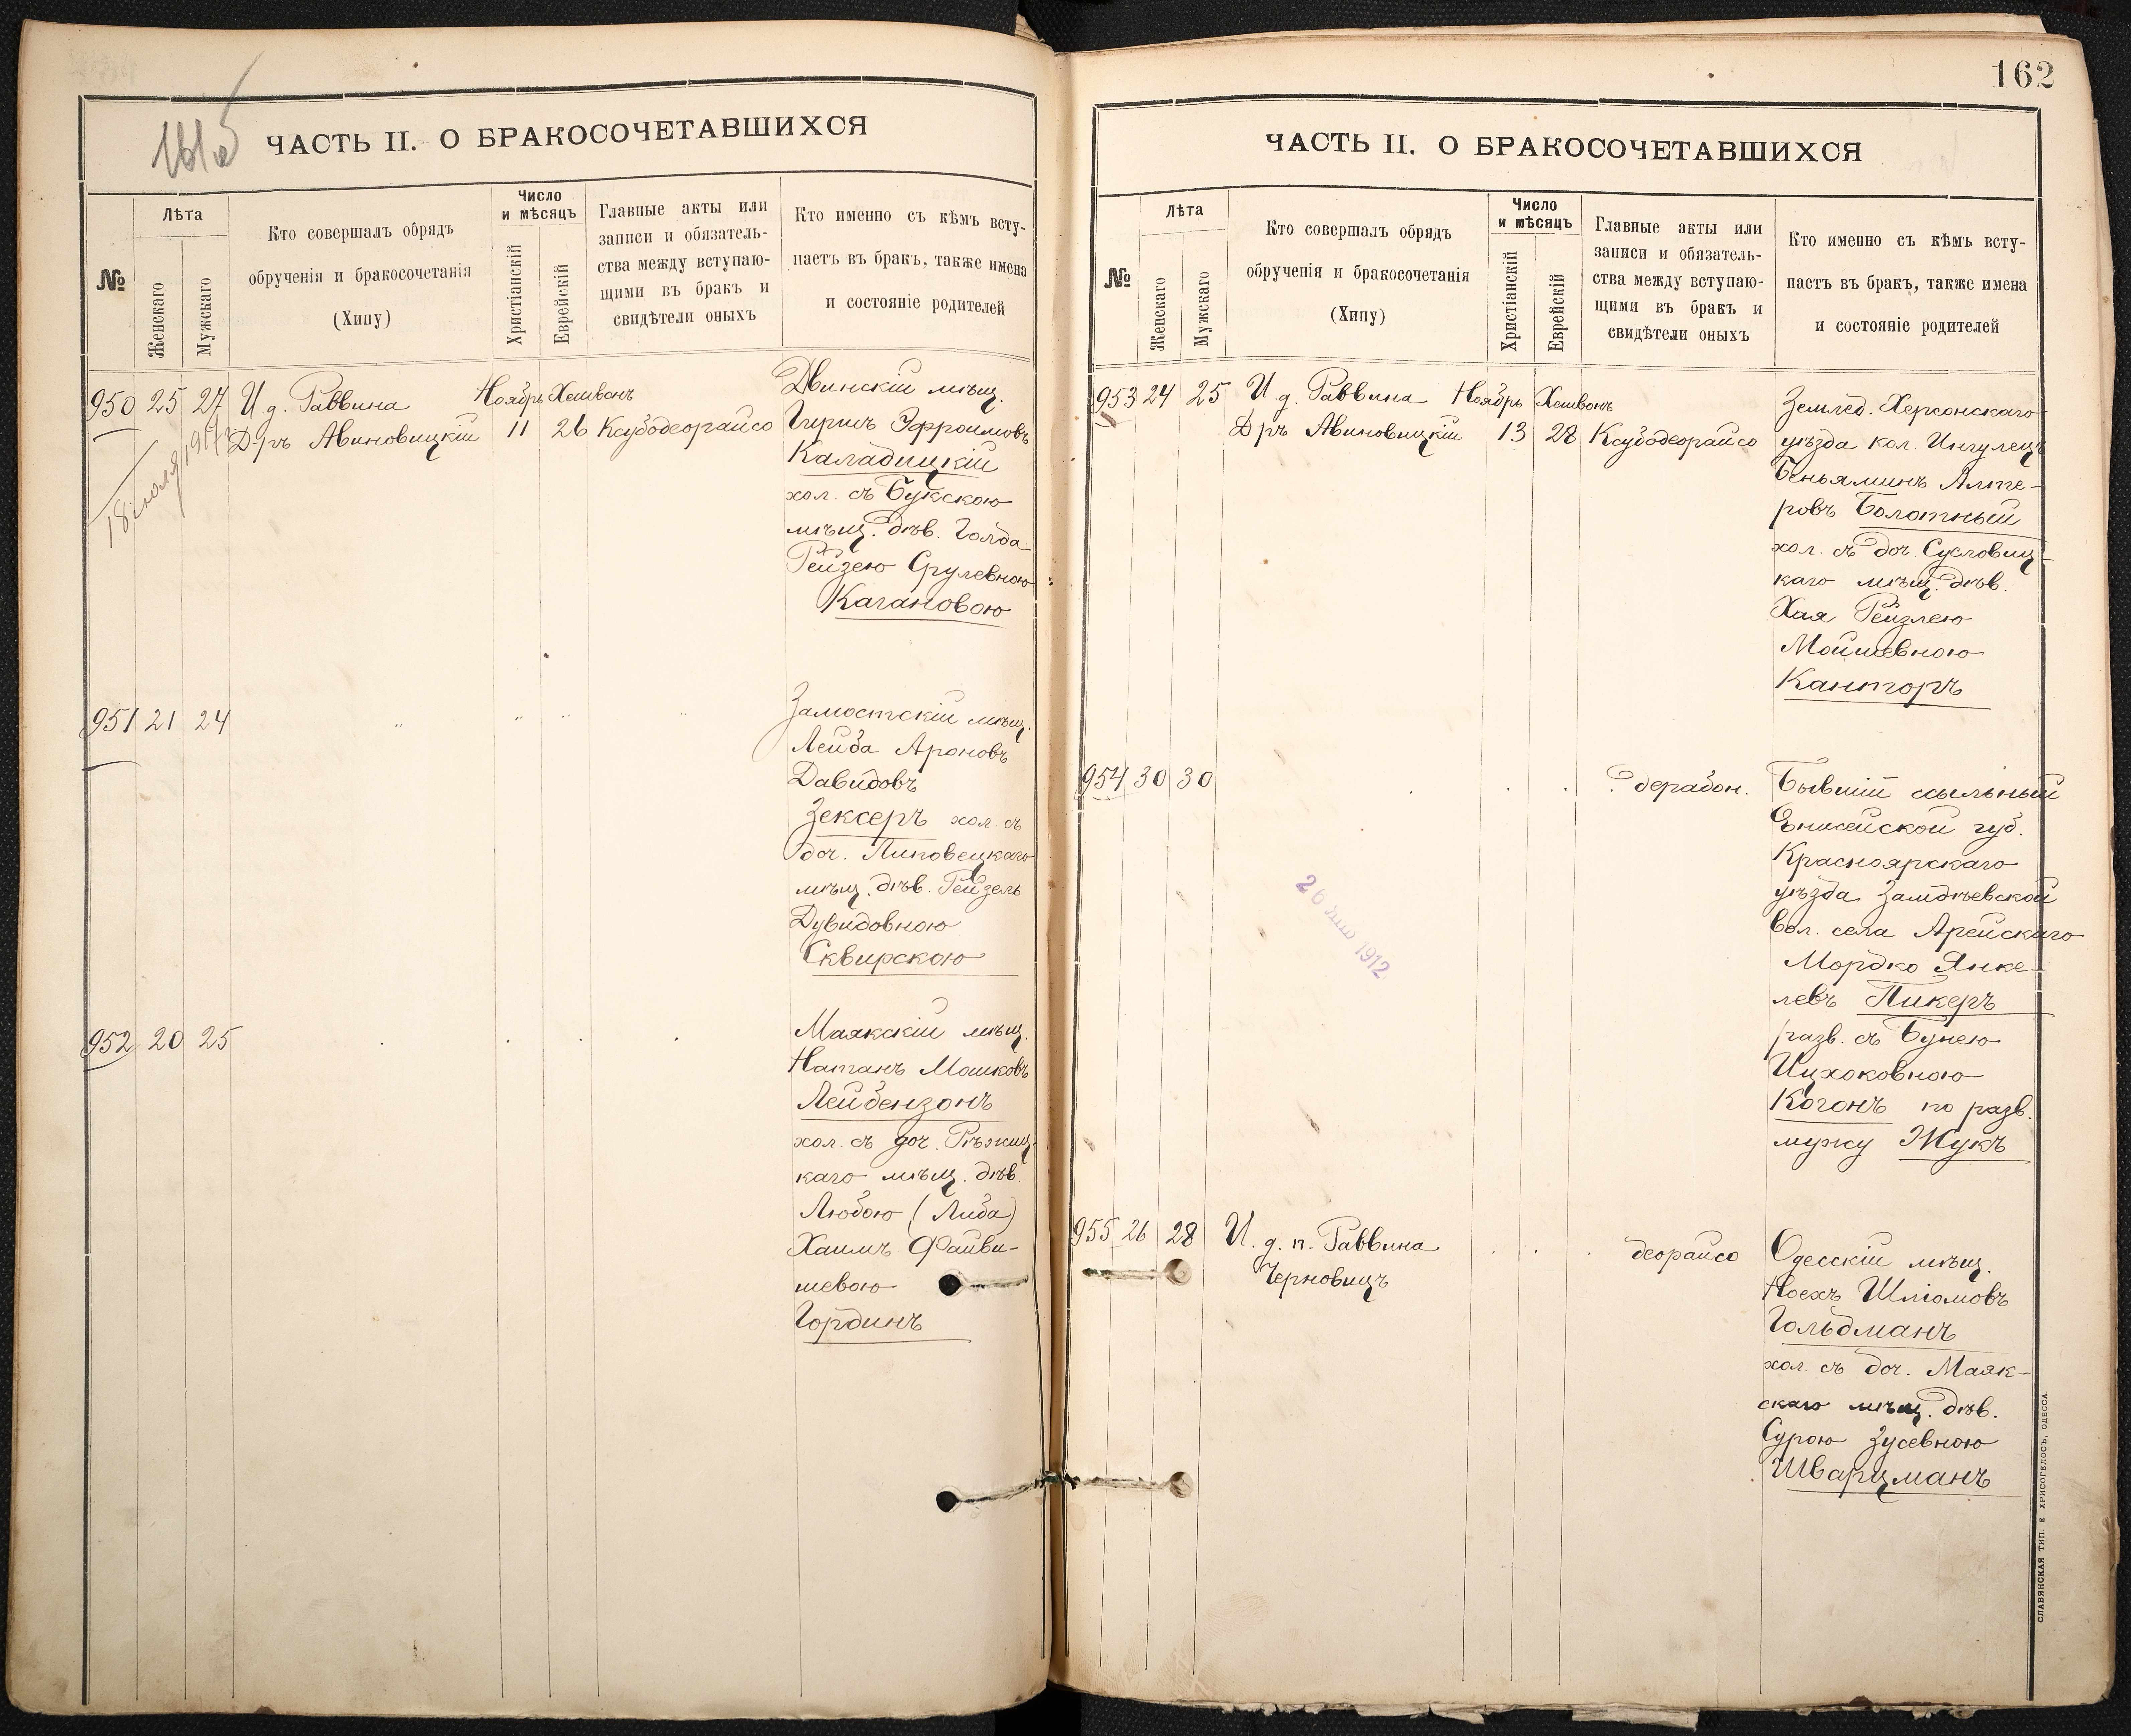 161б
ЧАСТЬ II. О БРАКОСОЧЕТАВШИХСЯ
№
Лѣта
Женскаго
Мужскаго
Кто совершалъ обрядъ
обрученія и бракосочетанія
(Хипу)
Число
и мѣсяцъ
Христіанскій
Еврейскій
Главные акты или
записи и обязатель-
ства между вступаю-
щими въ бракъ и
свидѣтели оныхъ
Кто именно съ кѣмъ всту-
паетъ въ бракъ, также имена
и состояніе родителей
950 25 27 И. д. Раввина Ноябрь Хешвонъ Двинскій мѣщ.
Д-ръ Авиновицкій 11 26 Ксубодеорайсо Гиршъ Эфроимовъ
18 іюля
Каладицкій
хол. съ Букскою
мѣщ. дѣв. Голда
Рейзею Срулевною
Кагановою
951 21 24 " " " " Замостскій мѣщ.
Лейба Ароновъ
Давидовъ
Зексеръ хол. съ
доч. Липовецкаго
мѣщ. дѣв. Рейзель
Дувидовною
Сквирскою
952 20 25 Маякскій мѣщ.
Натанъ Мошковъ
Лейбензонъ
хол. съ доч. Рѣжиц-
каго мѣщ. дѣв.
Любою (Либа)
Хаимъ Файви-
шевою
Гординъ
162
ЧАСТЬ II. О БРАКОСОЧЕТАВШИХСЯ
№
Лѣта
Женскаго
Мужскаго
Кто совершалъ обрядъ
обрученія и бракосочетанія
(Хипу)
Число
и мѣсяцъ
Христіанскій
Еврейскій
Главные акты или
записи и обязатель-
ства между вступаю-
щими въ бракъ и
свидѣтели оныхъ
Кто именно съ кѣмъ всту-
паетъ въ бракъ, также имена
и состояніе родителей
953 24 25 И. д. Раввина Ноябрь Хешвонъ Землед. Херсонскаго
Д-ръ Авиновицкій 13 28 Ксубодеорайсо уѣзда кол. Ингулецъ
Беньяминъ Алте-
ровъ Болотный
хол. съ доч. Сусловиц-
каго мѣщ. дѣв.
Хая Рейзлею
Мойшевною
Канторъ
954 30 30 дерабон. Бывшій ссыльный
Енисейской губ.
Красноярскаго
уѣзда Заледѣевской
вол. села Арейскаго
Мордко Янке-
левъ Пикеръ
разв. съ Бунею
Ицхоковною
Когонъ по разв.
мужу Жукъ
26 1912
955 26 28 И. д. п. Раввина деорайсо Одесскій мѣщ.
Черновицъ
Ноехъ Шліомовъ
Гольдманъ
хол. съ доч. Маяк-
скаго мѣщ. дѣв.
Сурою Зусевною
Шварцманъ
СЛАВЯНСКАЯ ТИП. Е. ХРИСОГЕЛОСЪ, ОДЕССА